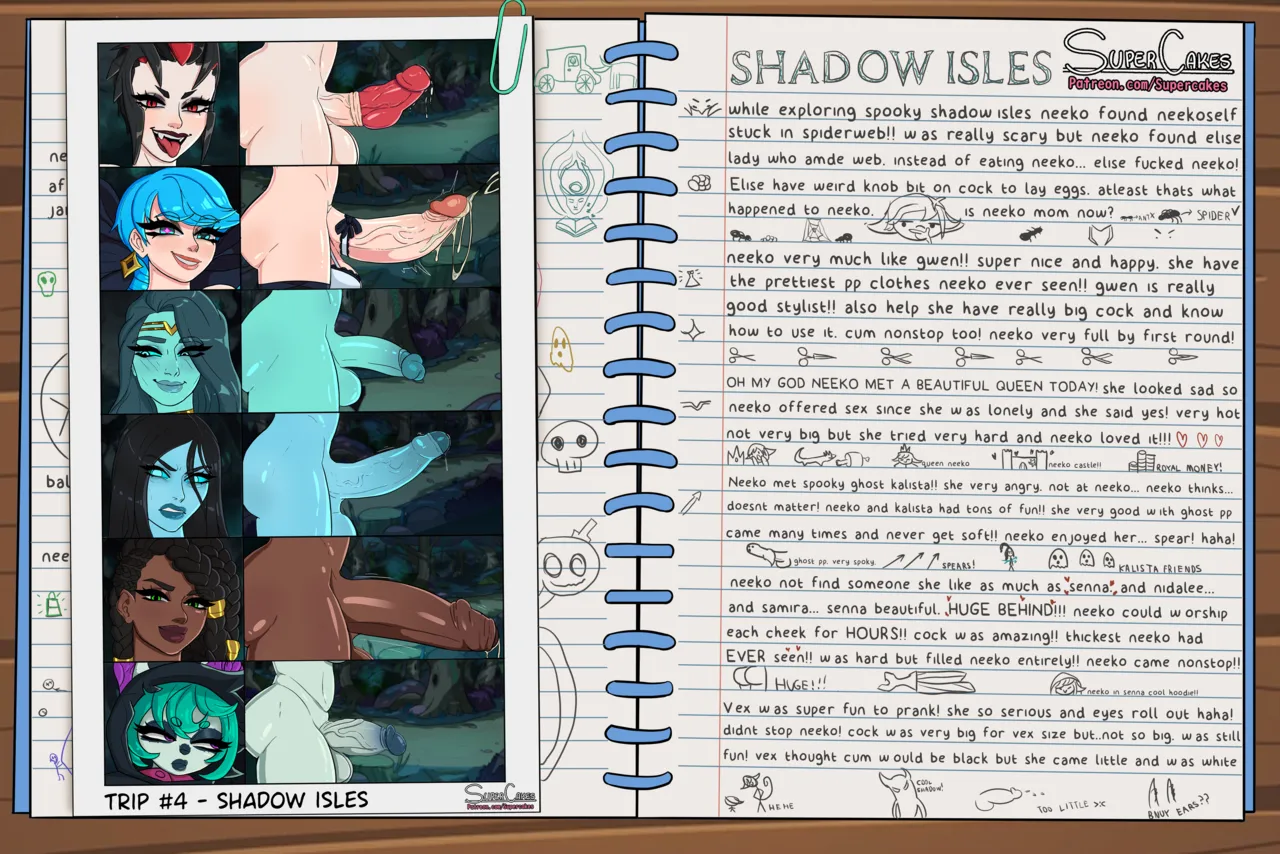 ne
af
ja
bal
nee
TRIP #4 - SHADOW ISLES
SUPERCAKES
Patreon.com/Supercakes
SHADOW ISLES
SUPERCAKES
Patreon.com/Supercakes
while exploring spooky shadow isles neeko found neekoself
stuck in spiderweb!! was really scary but neeko found elise
lady who amde web. instead of eating neeko... elise fucked neeko!
Elise have weird knob bit on cock to lay eggs. atleast thats what
happened to neeko. is neeko mom now? ANTX SPIDER
neeko very much like gwen!! super nice and happy. she have
the prettiest pp clothes neeko ever seen!! gwen is really
good stylist!! also help she have really big cock and know
how to use it. cum nonstop too! neeko very full by first round!
OH MY GOD NEEKO MET A BEAUTIFUL QUEEN TODAY! she looked sad so
neeko offered sex since she was lonely and she said yes! very hot
not very big but she tried very hard and neeko loved it!!!
queen neeko neeko castle!! ROYAL MONEY!
Neeko met spooky ghost kalista!! she very angry. not at neeko... neeko thinks...
doesnt matter! neeko and kalista had tons of fun!! she very good with ghost pp
came many times and never get soft!! neeko enjoyed her... spear! haha!
ghost pp. very spoky. SPEARS! KALISTA FRIENDS
neeko not find someone she like as much as senna. and nidalee...
and samira... senna beautiful. HUGE BEHIND!!! neeko could worship
each cheek for HOURS!! cock was amazing!! thickest neeko had
EVER seen!! was hard but filled neeko entirely!! neeko came nonstop!!
HUGE!!! neeko in senna cool hoodie!!
Vex was super fun to prank! she so serious and eyes roll out haha!
didnt stop neeko! cock was very big for vex size but..not so big. was still
fun! vex thought cum would be black but she came little and was white
HEHE COOL SHADOW! TOO LITTLE >< BNUY EARS??